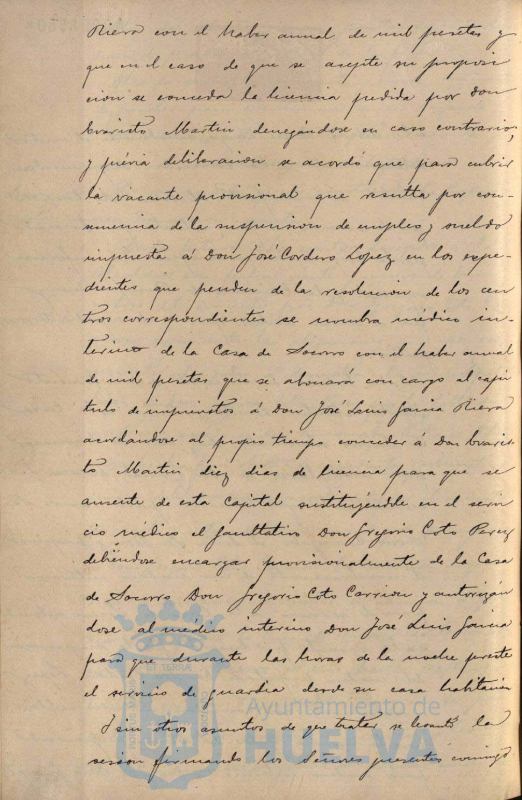 Riera con el haber anual de mil pesetas y
que en el caso de que se acepte su proposi
cion se conceda la licencia pedida por Don
Evaristo Martin denegándose en caso contrario,
y prévia deliberacion se acordó que para cubrir
la vacante provisional que resulta por con-
secuencia de la suspension de empleo y sueldo
impuesta á Don José Cordero Lopez en los espe-
dientes que penden de la resolucion de los cen
tros correspondientes se nombra médico in-
terino de la Casa de Socorro con el haber anual
de mil pesetas que se abonará con cargo al capi
tulo de imprevistos á Don José Luis Garcia Riera
acordándose al propio tiempo conceder á Don Evaris
to Martin diez dias de licencia para que se
ausente de esta Capital sustituyéndole en el servi
cio médico el facultativo Don Gregorio Coto Perez
debiéndose encargar provisionalmente de la Casa
de Socorro Don Gregorio Coto Carrion y autorizán
dose al médico interino Don José Luis Garcia
para que durante las horas de la noche preste
el servicio de guardia desde su casa habitacion
Y sin otros asuntos de que tratar se levantó la
sesion firmando los Señores presentes conmigo
Ayuntamiento de
HUELVA